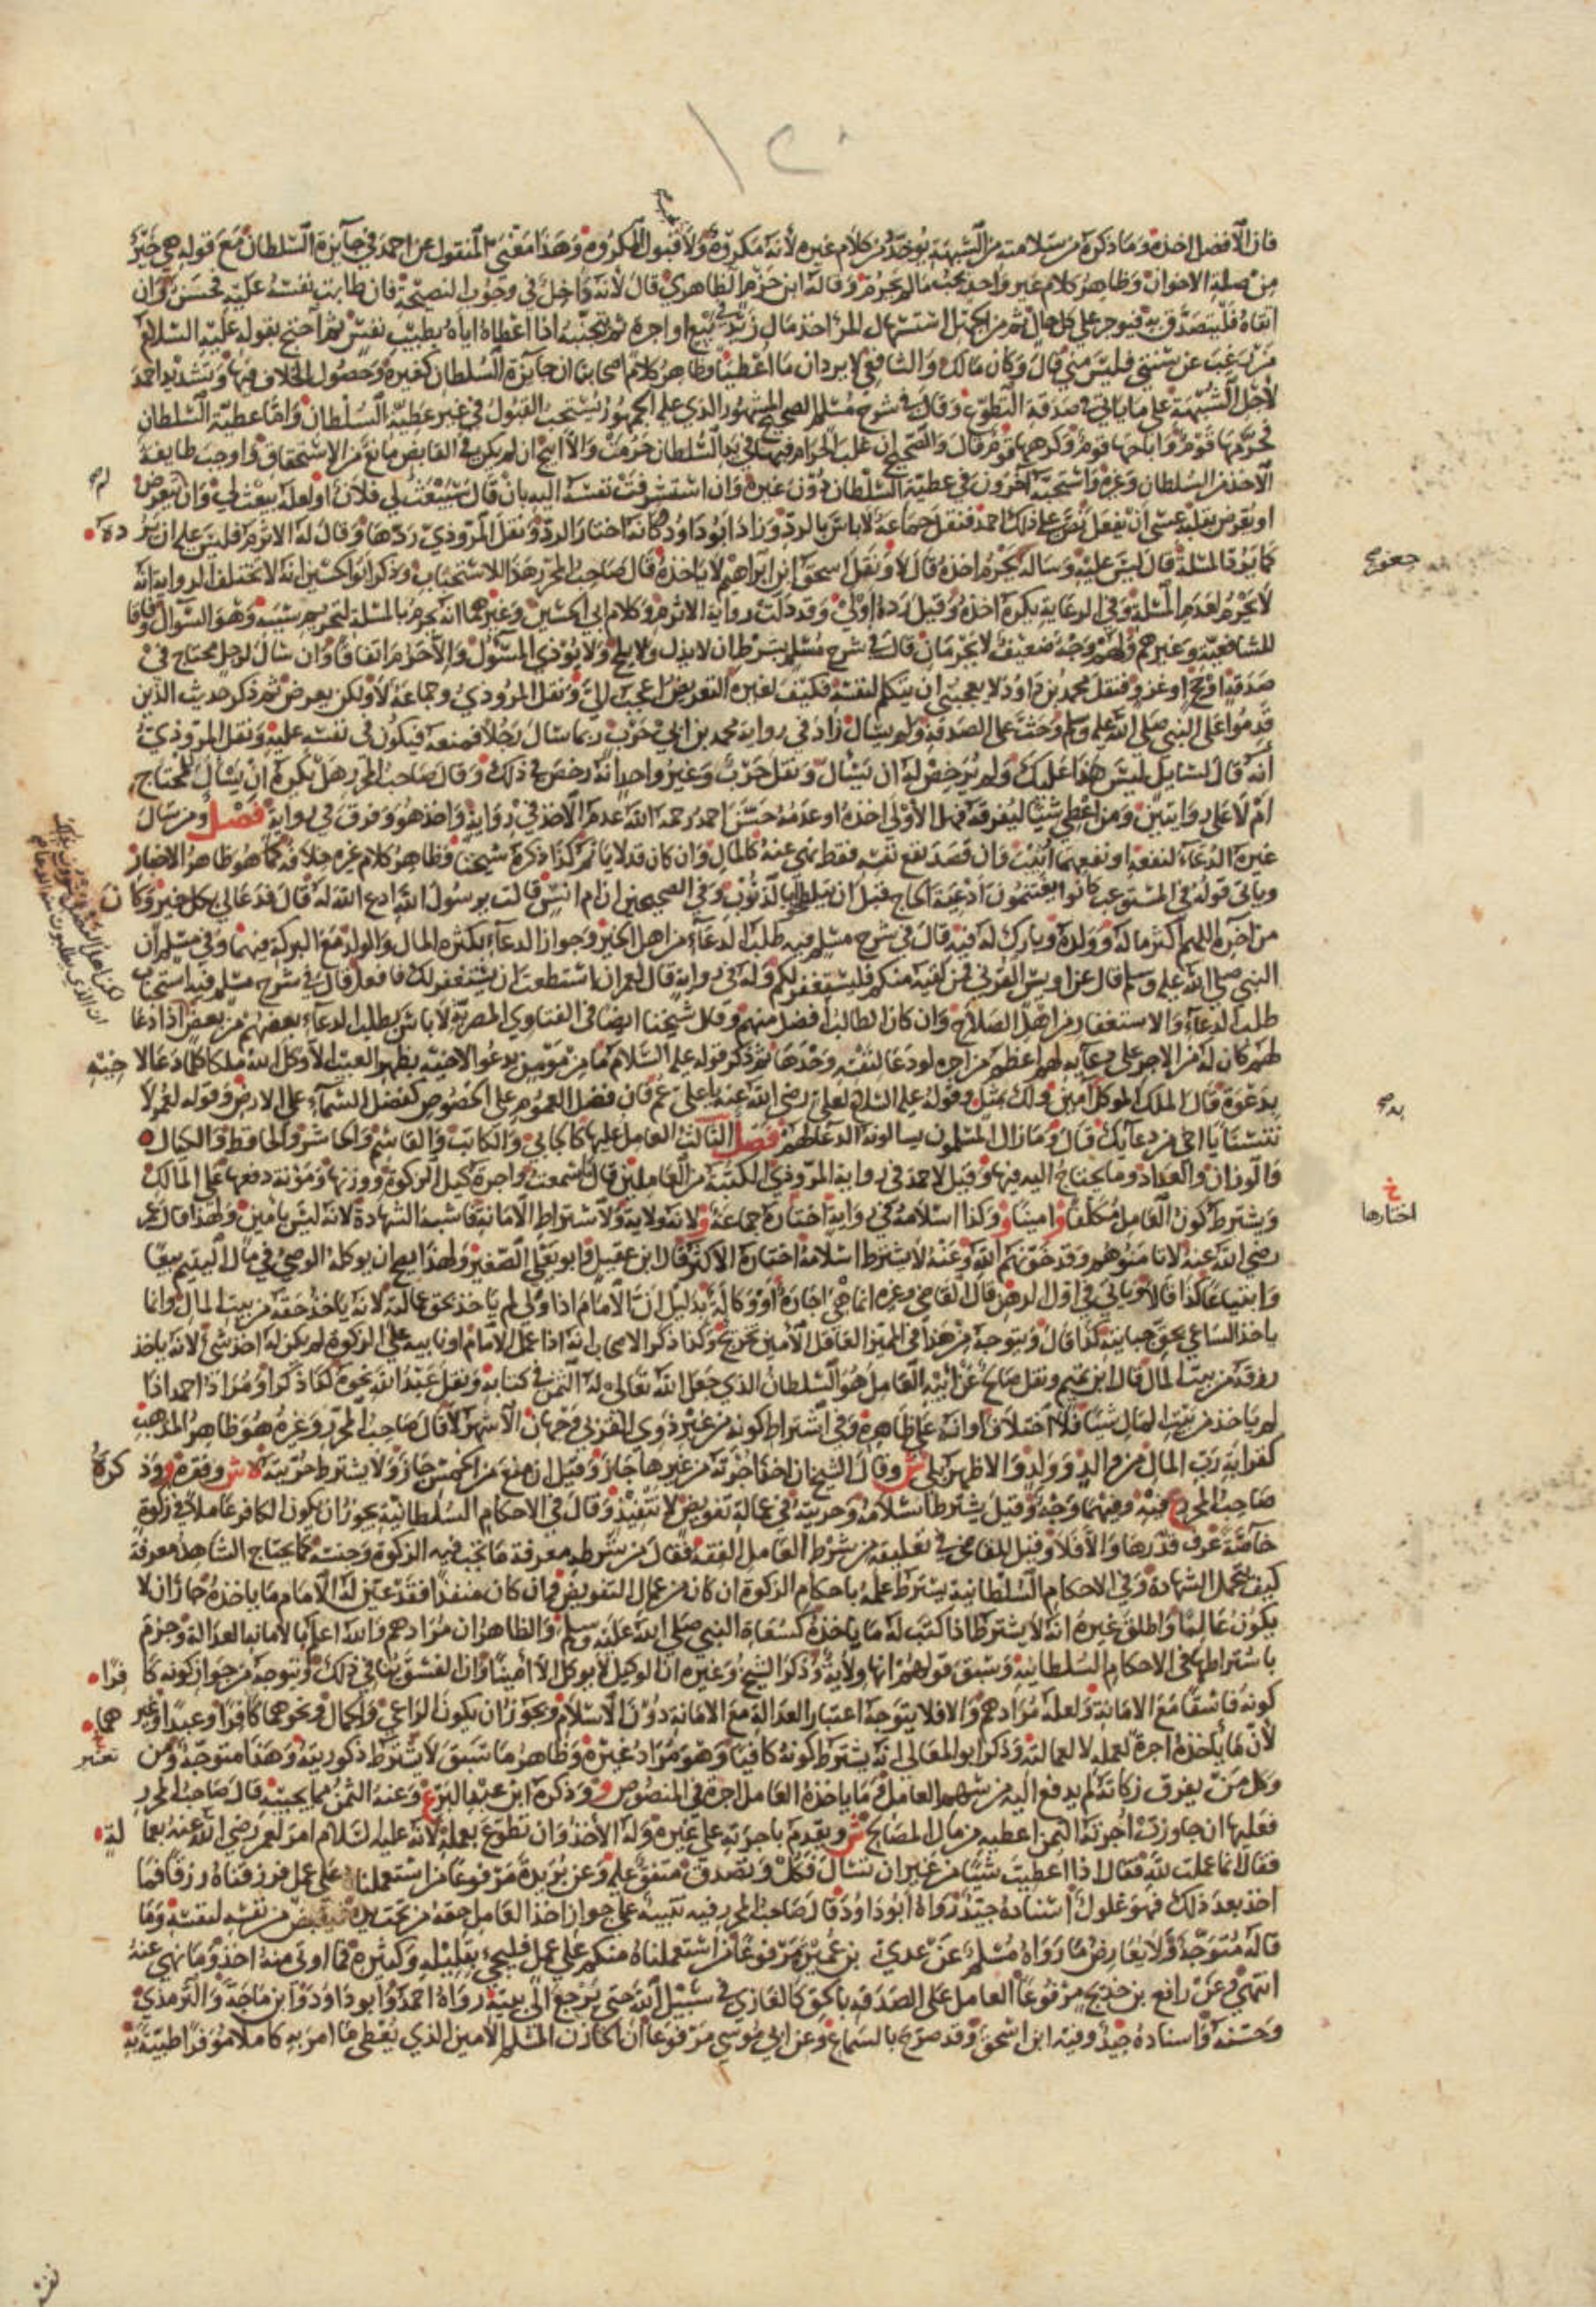 ١٢٠
فان الافضل اخذه وما ذكره من سلامته من الشبهة يوخذ من كلام غيره لانه مكروه ولا قبول المكروه وهذا معنى المنقول عن احمد في جايزة السلطان مع قوله هي خير
من صلة الاخوان وظاهر كلام غير واحد يجب ما لم يحرم وقاله ابن حزم الظاهري قال لانه داخل في وجوب النصيحة فان طابت نفسه عليه فحسن وان
اتقاه فليتصدق به فيوجر على كل حال ثم من الجهل استسهال المرء اخذ مال زيد في بيع او اجرة ثم يتجنبه اذا اعطاه اياه بطيب نفس ثم احتج بقوله عليه السلام
من رغب عن سنتي فليس مني قال وكان مالك والشافعي لا يردان ما اعطيا وظاهر كلام اصحابنا ان جايزة السلطان كغيره وحصول الخلاف فيها وتشديد احمد
لاجل الشبهة على ما ياتي في صدقة التطوع وقال في شرح مسلم الصحيح المشهور الذي عليه الجمهور يستحب القبول في غير عطية السلطان واما عطية السلطان
فحرمها قوم واباحها قوم وكرهها قوم قال والصحيح ان غلب الحرام فيما في يد السلطان حرمت والا ابيح ان لم يكن في القابض مانع من الاستحقاق واوجب طايفة
الاخذ من السلطان وغيره واستحبه اخرون في عطية السلطان دون غيره وان استشرفت نفسه اليه بان قال سيبعث لي فلان او لعله يبعث لي وان تعرض
او تعرض بقلبه عسى ان يفعل نص على ذلك احمد فنقل جماعة لا باس بالرد وزاد ابو داود وكانه اختار الرد ونقل المروذي ردها وقال له الاثرم فليس عليه ان يرده
كما يرد المسلة قال ليس عليه وساله يحرم اخذه قال لا ونقل اسحق ابن ابراهيم لا ياخذه قال صاحب المحرر هذا للاستحباب وذكر ابو الحسين انه لا تختلف الرواية انه
لا يحرم لعدم المسلة وفي الرعاية يكره اخذه وقيل رده اولى وقد دلت رواية الاثرم وكلام ابي الحسين وغيرهما انه يحرم بالمسلة لتحريم سببه وهو السؤال وفاقا
للشافعية وغيرهم ولهم وجه ضعيف لا يحرمان قال في شرح مسلم بشرط ان لا يذل ولا يلح ولا يوذي المسؤل والا حرم اتفاقا وان سال لرجل محتاج في
صدقة او حج او غزو فنقل محمد بن داود لا يعجبني ان يتكلم لنفسه فكيف لغيره التعريض اعجب الي ونقل المروذي وجماعة لا ولكن يعرض ثم ذكر حديث الذين
قدموا على النبي صلى الله عليه وسلم وحث على الصدقة ولم يسال زاد في رواية محمد بن ابي حرب ربما سال رجلا فمنعه فيكون في نفسه عليه ونقل المروذي
انه قال لسايل ليس هذا عليك ولم يرخص له ان يسال ونقل حرب وغير واحد انه رخص في ذلك وقال صاحب المحرر هل يكره ان يسال للمحتاج
ام لا على روايتين ومن اعطي شيئا ليفرقه فهل الاولى اخذه او عدمه حسن احمد رحمه الله عدم الاخذ في رواية واخذ هو وفرق في رواية فصل ومن سال
غيره الدعاء لنفعه او نفعهما اثيب وان قصد نفع نفسه فقط نهي عنه كالمال وان كان قد لا ياثم كذا ذكره شيخنا وظاهر كلام غيره خلافه كما هو ظاهر الاخبار
وياتي قوله في المستوعب كانوا يغتنمون ادعية الحاج قبل ان يتلطخوا بالذنوب وفي الصحيحين ان ام انس قالت يرسول الله ادع الله له قال فدعا لي بكل خير وكان
من اخره اللهم اكثر ماله وولده وبارك له فيه قال في شرح مسلم فيه طلب الدعاء من اهل الخير وجواز الدعاء بكثرة المال والولد مع البركة فيهما وفي مسلم ان
النبي صلى الله عليه وسلم قال عن اويس القرني فمن لقيه منكم فليستغفر لكم وله في رواية قال لعمر ان استطعت ان يستغفر لك فافعل قال في شرح مسلم فيه استحباب
طلب الدعاء والاستغفار من اهل الصلاح وان كان الطالب افضل منهم وقال شيخنا ايضا في الفتاوي المصرية لا باس بطلب الدعاء بعضهم من بعض اذا دعا
لهم كان له من الاجر على دعايه لهم اعظم من اجره لو دعا لنفسه وحدها ثم ذكر قوله عليه السلام ما من مؤمن يدعو لاخيه بظهر الغيب الا وكل الله ملكا كلما دعا لاخيه
بدعوة قال الملك الموكل امين ولك بمثل وقوله عليه السلام لعلي رضي الله عنه يا علي عم فان فضل العموم على الخصوص كفضل السماء على الارض وقوله لعمر لا
تنسنا يا اخي من دعايك قال وما زال المسلمون يسالونه الدعاء لهم فصل الثالث العامل عليها كالجابي والكاتب والقاسم والحاشر والحافظ والكيال
والوزان والعداد وما يحتاج اليه فيها وقيل لاحمد في رواية المروذي الكتبة من العاملين قال ما سمعت واجرة كيل الزكوة ووزنها ومؤنة دفعها على المالك
ويشترط كون العامل مكلفا و امينا و وكذا اسلامه في رواية اختاره جماعة و لانه ولاية ولاشتراط الامانة فاشبه الشهادة لانه ليس بامين ولهذا قال عمر
رضي الله عنه لا تامنوهم وقد خونهم الله وعنه لا يشترط اسلامه اختاره الاكثر وقال ابن عقيل وابو يعلى الصغير ولهذا يصح ان يوكله الوصي في مال اليتيم بيعا
وابتياعا كذا قالا وياتي في اول الرهن قال القاضي وغيره انما هي اجارة او وكالة بدليل ان الامام اذا ولي لم ياخذ بحق عمالته لانه ياخذ حقه من بيت المال وانما
ياخذ الساعي بحق جبايته كذا قال ويتوجه من هذا في المميز العاقل الامين تخريج وكذا ذكر الاصحاب انه اذا عمل الامام او نايبه على الزكوة لم يكن له اخذ شيء لانه ياخذ
رزقه من بيت المال قال ابن تميم ونقل صالح عن ابيه العامل هو السلطان الذي جعل الله تعالى له الثمن في كتابه ونقل عبد الله نحوه كذا ذكر او مراد احمد اذا
لم ياخذ من بيت المال شيئا فلا اختلاف او انه على ظاهره وفي اشتراط كونه من غير ذوي القربى وجهان الاشهر لا قال صاحب المحرر وغيره هو ظاهر المذهب
كقرابة رب المال من والد وولد والاظهر بلى ش وقال الشيخ ان اخذ اجرته من غيرها جاز وقيل ان منع من الخمس جاز ولا يشترط حريته ش وفقره و وذكره
صاحب المحرر ع فيه وفيهما وجه وقيل يشترط اسلامه وحريته في عمالة تفويض لا تنفيذ وقال في الاحكام السلطانية يجوز ان يكون الكافر عاملا في زكوة
خاصة عرف قدرها والا فلا وقيل للقاضي في تعليقه من شرط العامل الفقه فقال من شرطه معرفة ما تجب فيه الزكوة وجنسه كما يحتاج الشاهد معرفة
كيف يتحمل الشهادة وفي الاحكام السلطانية يشترط علمه باحكام الزكوة ان كان من عمال التفويض وان كان منفذا فقد عين له الامام ما ياخذه جاز ان لا
يكون عالما واطلق غيره انه لا يشترط اذا كتب له ما ياخذه كسعاة النبي صلى الله عليه وسلم والظاهر ان مرادهم والله اعلم بالامانة العدالة وجزم
باشتراطها في الاحكام السلطانية وسبق قولهم انها ولاية وذكر الشيخ وغيره ان الوكيل لا يوكل الا امينا وان الفسق ينافي ذلك ويتوجه من جواز كونه كافرا
كونه فاسقا مع الامانة ولعله مرادهم والا فلا يتوجه اعتبار العدالة مع الامانة دون الاسلام ويجوز ان يكون الراعي والحمال ونحوهما كافرا وعبدا وغيرهما
لان ما ياخذه اجرة لعمله لا لعمالته وذكر ابو المعالي انه يشترط كونه كافيا وهو مراد غيره وظاهر ما سبق لا يشترط ذكوريته وهذا متوجه ومن
وكل من يفرق زكاته لم يدفع اليه من سهم العامل وما ياخذه العامل اجرة في المنصوص و وذكره ابن عبد البر ع وعنه الثمن مما يجبيه قال صاحب المحرر
فعليها ان جاوزت اجرته الثمن اعطيه من مال المصالح ش ويقدم باجرته على غيره وله الاخذ وان تطوع بعمله لانه عليه السلام امر لعمر رضي الله عنه بعمالة
فقال انما عملت لله فقال اذا اعطيت شيئا من غير ان تسال فكل وتصدق متفق عليه وعن بريدة مرفوعا من استعملناه على عمل فرزقناه رزقا فما
اخذ بعد ذلك فهو غلول اسناده جيد رواه ابو داود قال صاحب المحرر فيه تنبيه على جواز اخذ العامل حقه من تحت يده فيقبض من نفسه لنفسه وما
قاله متوجه ولا يعارض ما رواه مسلم عن عدي بن عميرة مرفوعا من استعملناه منكم على عمل فليجي بقليله وكثيره فما اوتي منه اخذ وما نهي عنه
انتهى وعن رافع بن خديج مرفوعا العامل على الصدقة بالحق كالغازي في سبيل الله حتى يرجع الى بيته رواه احمد وابو داود وابن ماجة والترمذي
وحسنه واسناده جيد وفيه ابن اسحق وقد صرح بالسماع وعن ابي موسى مرفوعا ان الخازن المسلم الامين الذي يعطي ما امر به كاملا موفرا طيبة به
خ
اختارها
نفسه